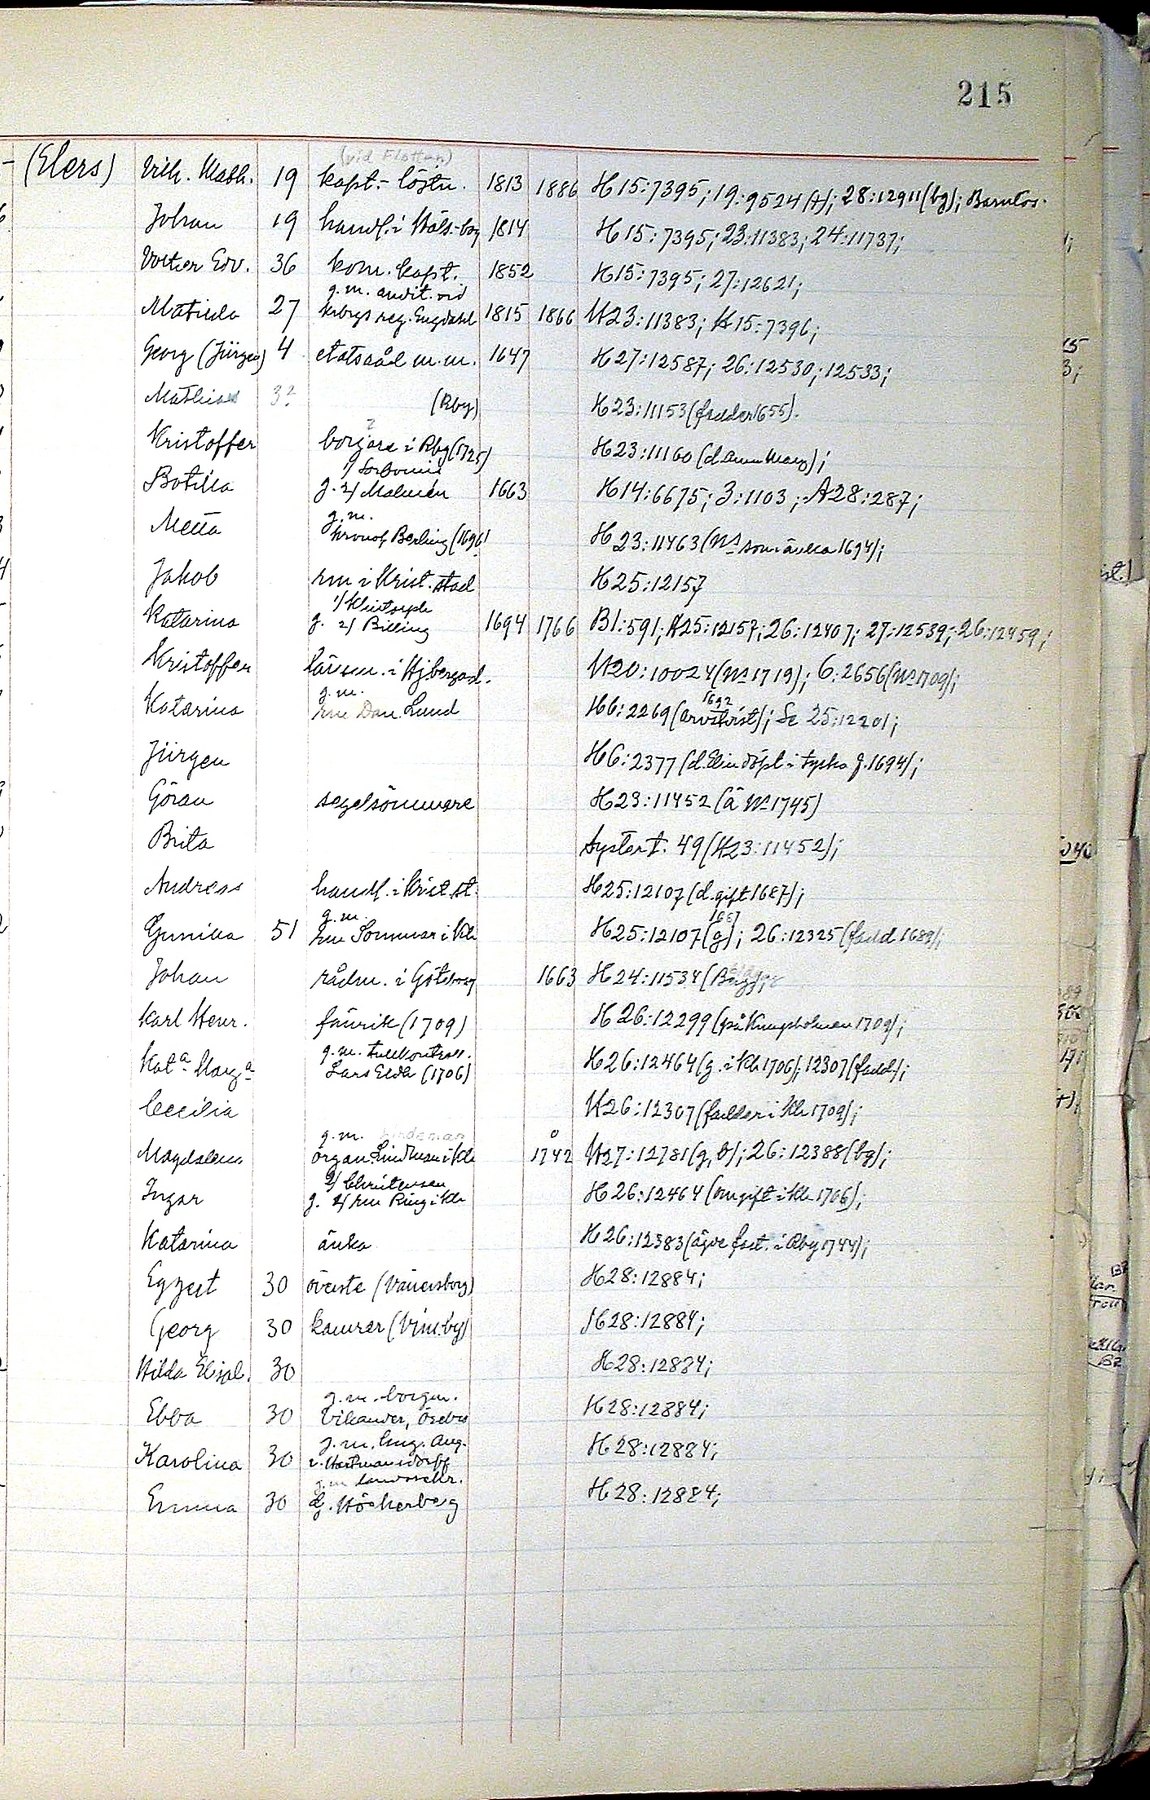 215
(vid Flottan)
(Elers) Vilh. Math. 19 kapt.-löjtn. 1813 1886 H15:7395; 19:9524(+); 28:12911(bg); Barnlös.
Johan 19 handl. i 1814 H15:7395; 23:11383; 24:11737;
Volter Edv. 36 kom. kapt. 1852 H15:7395; 27:12621;
g.m. audit. vid
Matilda 27 reg. Engdahl 1815 1866 H23:11383; H15:7396;
Georg (Jürgen) 4 etatsråd m.m. 1647 H27:12587; 26:12530; 12533;
Mathias 3? (Rby) H23:11153 (fadder 1655).
Kristoffer borgare i Rby (1725) H23:11160
Botilla g. 2/ Malmén 1663 H14:6675; 3:1103; A28:287;
g.m.
Metta Berling (1696) H23:11463 (Ns som änka 1694);
Jakob rm i Krist.stad H25:12157
Katarina g. 2/ Billing 1694 1766 B1:591; H25:12157; 26:12407; 27:12539; 26:12459;
Kristoffer H20:10024 (Ns 1719); 6:2656 (Ns 1709);
g.m. 1692
Katarina rm Dan. Lund H6:2269 (arvskift); Se 25:12201;
Jürgen H6:2377 (d. Elin döpt i tyska f. 1694);
Göran segelsömmare H23:11452 (å Ns 1745)
Brita Syster t. 49 (H23:11452);
Andreas handl. i Krist.st. H25:12107 (d. gift 1687);
g.m.
Gunilla 51 rm Sommar i Kla H25:12107 (g); 26:12325 (fadd 1689);
Johan rådm. i Göteborg 1663 H24:11534
Karl Henr. fänrik (1709) H26:12299 (på Kungsholmen 1709);
g.m. tullkontroll.
Kata Marga Lars (1706) H26:12464 (g. i Kla 1706); 12307 (fadd);
Cecilia H26:12307 (fadder i Kla 1709);
g.m. Lindeman
Magdalena organ. Lindman i Kla 1742 H27:12781 (g, d); 26:12388 (bg);
1/ Christensen
Ingar g. 2/ rm Ring i Kla H26:12464 (omgift i Kla 1706);
Katarina änka H26:12383 (ägde fast. i Rby 1744);
Eggert 30 överste (Vänersborg) H28:12884;
Georg 30 kamrer (Vimby) H28:12884;
Hilda Elisab. 30 H28:12884;
g.m. borgm.
Ebba 30 Vikander, Örebro H28:12884;
g.m. ing. Aug.
Karolina 30 v. Hartmansdorff H28:12884;
g.m. landssekr.
Emma 30 G. Höckerberg H28:12884;